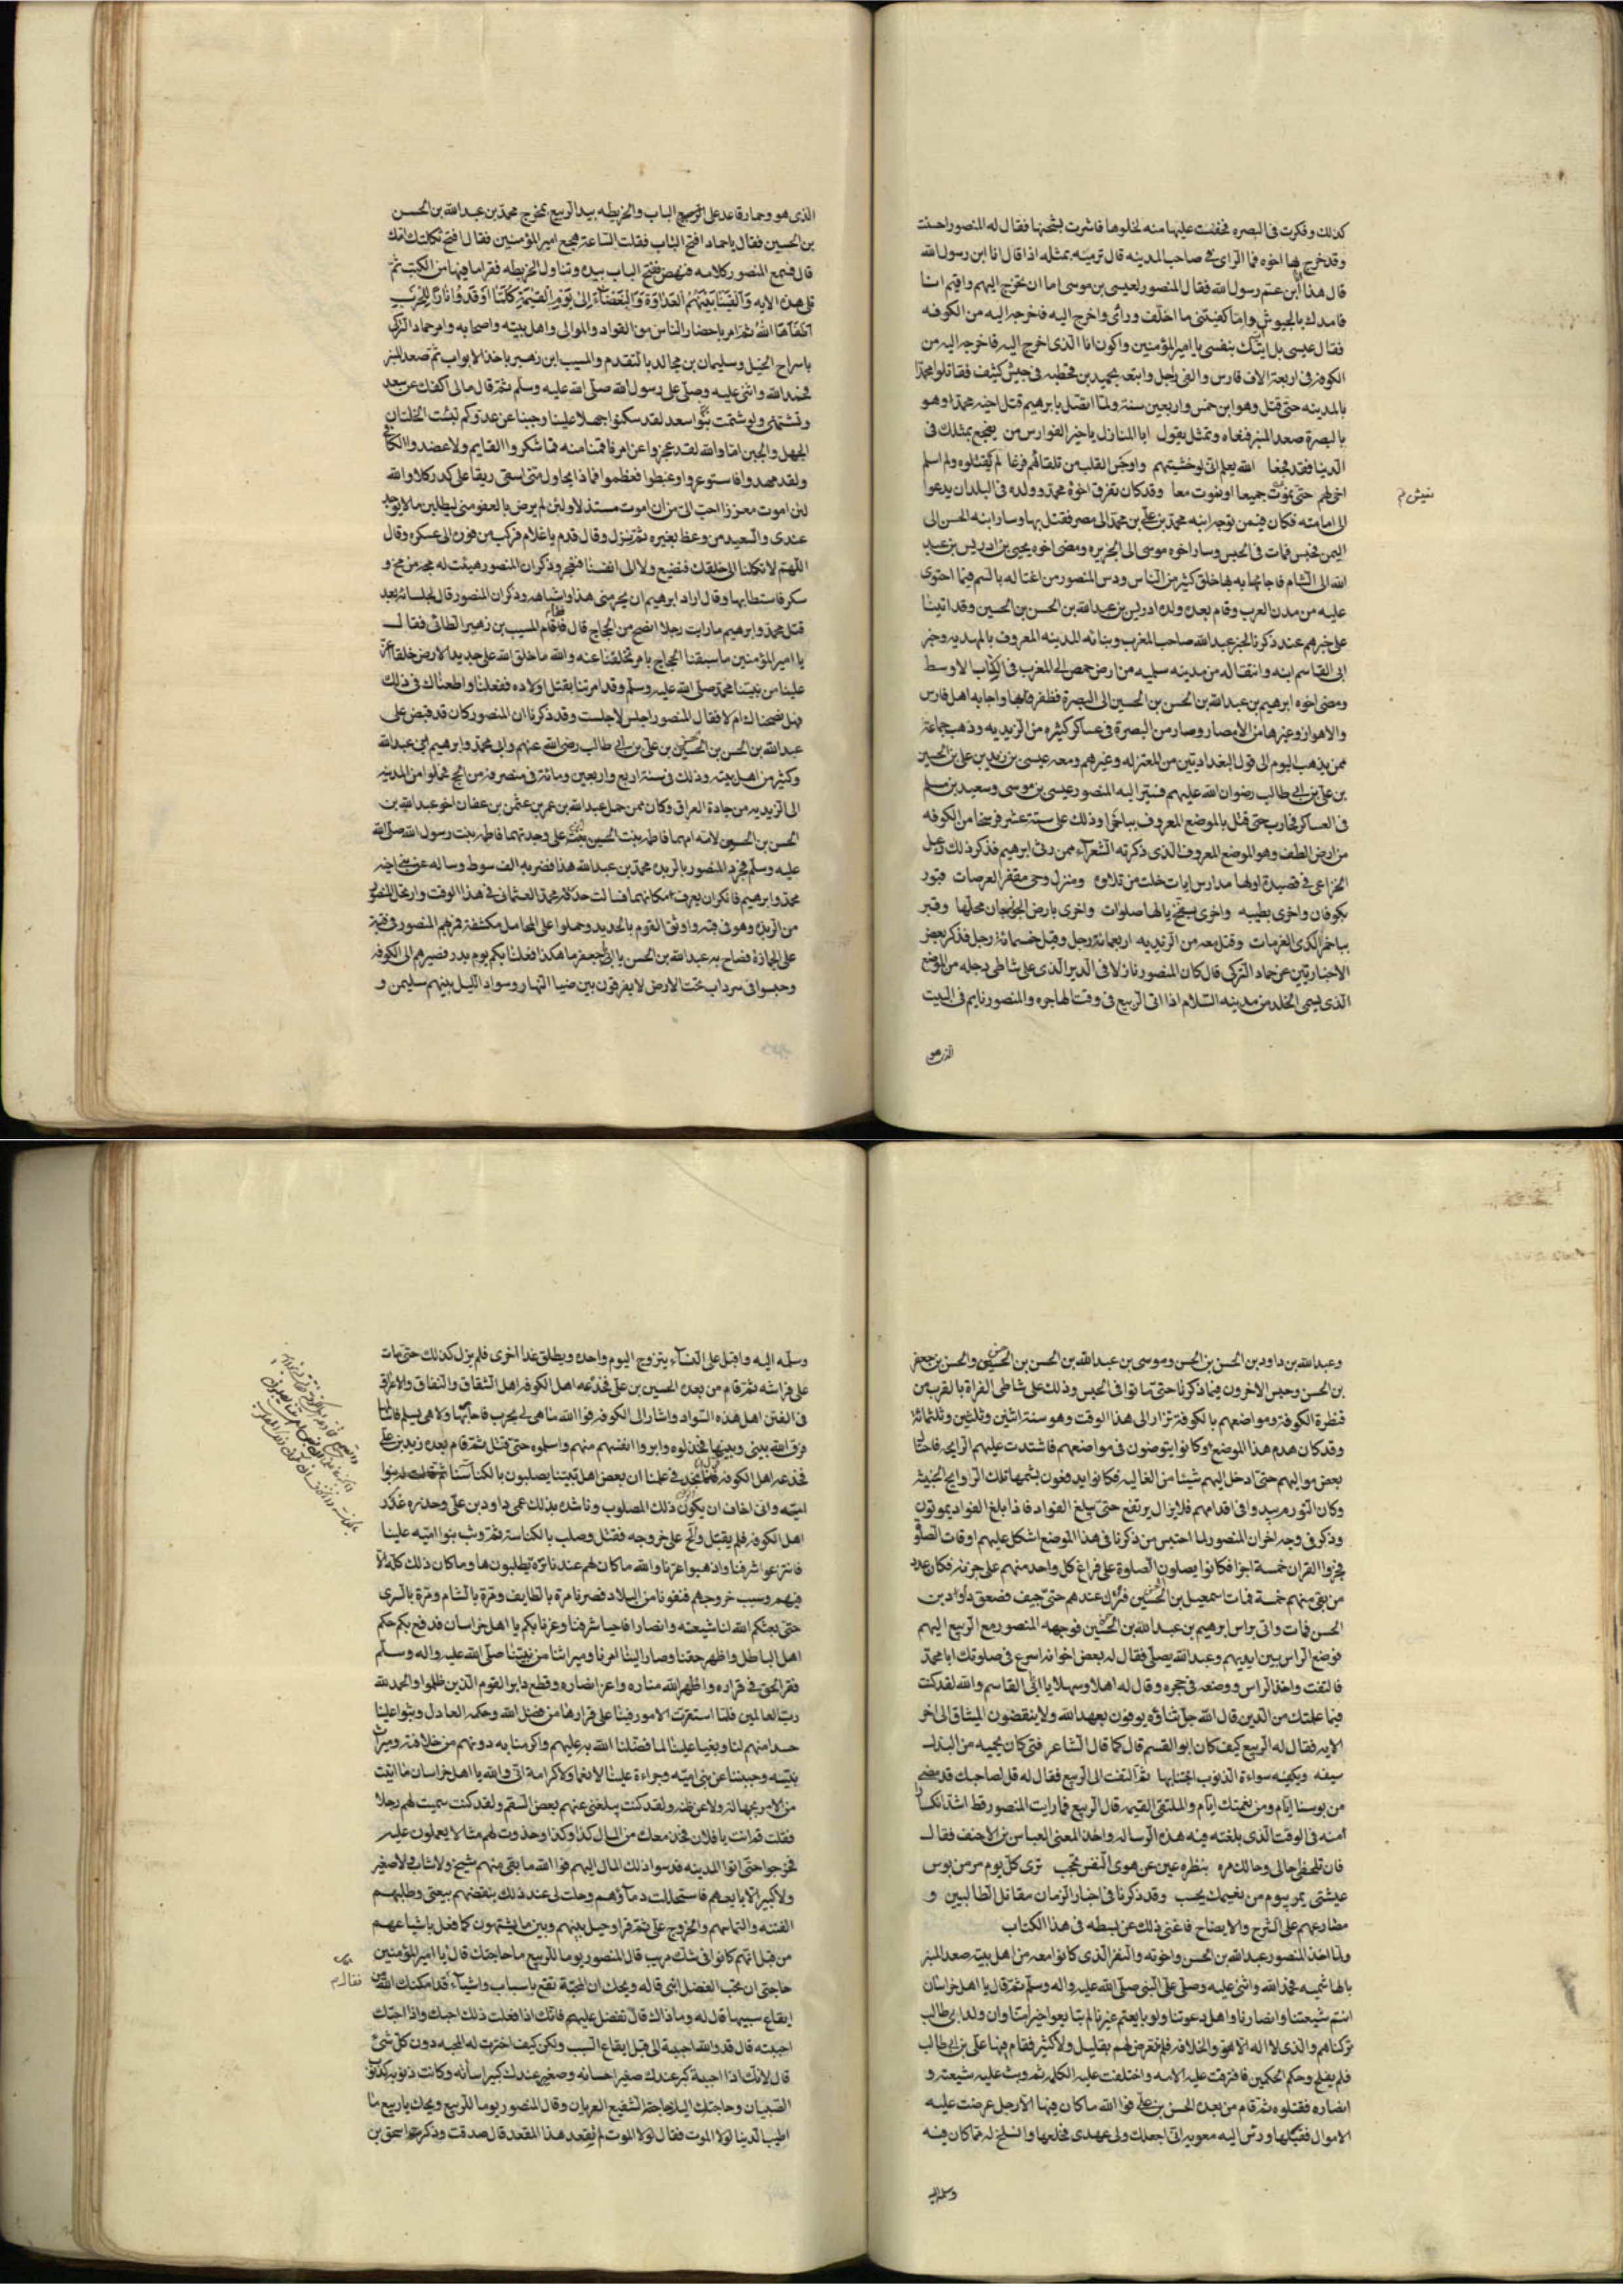 كذلك وفكرت في البصره فخفت عليها منه لخلوها فاشرت بشحنها فقال له المنصور احسنت
وقد خرج بها اخوه فما الراى في صاحب المدينه قال ترميه بمثله اذا قال انا ابن رسول الله
قال هذا انا ابن عم رسول الله فقال المنصور لعيسى بن موسى اما ان تخرج اليهم واقيم انا
فامدك بالجيوش واما تكفينى ما اخلف ورائى واخرج اليه فاخرجه اليه من الكوفه
فقال عيسى بل اقيك بنفسى يا امير المؤمنين واكون انا الذى اخرج اليه فاخرجه اليه من
الكوفه فى اربعة الاف فارس والفى راجل واتبعه بحميد بن قحطبه فى جيش كثيف فقاتلوا محمدا
بالمدينه حتى قتل وهو ابن خمس واربعين سنة ولما اتصل بابرهيم قتل اخيه محمد وهو
بالبصرة صعد المنبر فنعاه وتمثل يقول ابا المنازل يا خير الفوارس من يفجع بمثلك فى
الدينا فقد فجعا الله يعلم انى لو خشيتهم واوجس القلب من تلقائهم فزعا لم يقتلوه ولم اسلم
اخى لهم حتى نموت جميعا او نعيش معا وقد كان تفرق اخوة محمد وولده فى البلدان يدعوا
نعيش م
الى امامته فكان فيمن توجه ابنه محمد بن على بن محمد الى مصر فقتل بها وسار ابنه الحسن الى
اليمن فحبس فمات فى الحبس وسار اخوه موسى الى الجزيره ومضى اخوه يحيى بن ادريس بن عبد
الله الى الشام فاجابه بها خلق كثير من الناس ودس المنصور من اغتاله بالسم فيما احتوى
عليه من مدن العرب وقام بعده ولده ادريس بن عبد الله بن الحسن بن الحسين وقد اتينا
على خبرهم عند ذكرنا لخبر عبد الله صاحب المغرب وبنائه للمدينه المعروف بالمهديه وخبر
ابى القاسم ابنه وانتقاله من مدينه سلميه من ارض حمص الى المغرب فى الكتاب الاوسط
ومضى اخوه ابرهيم بن عبد الله بن الحسن بن الحسين الى البصرة فظفر فاتها واجابه اهل فارس
والاهواز وغيرها من الامصار وصار من البصرة فى عساكر كثيره من الزيديه وذهب جماعة
ممن يذهب اليوم الى قول البغداديين من المعتزله وغيرهم ومعه عيسى بن زيد بن على بن الحسين
بن على بن ابى طالب رضوان الله عليهم فسير اليه المنصور عيسى بن موسى وسعيد بن سلم
فى العساكر فحارب حتى قتل بالموضع المعروف بباخمرا وذلك على ستة عشر فرسخا من الكوفه
من ارض الطف وهو الموضع المعروف الذى ذكرته الشعراء ممن رثى ابرهيم فذكر ذلك دعبل
الخزاعى فى قصيدة اولها مدارس ايات خلت من تلاوه ومنزل وحى مقفر العرصات قبور
بكوفان واخرى بطيبه واخرى بفخ يا لها صلوات واخرى بارض الجوزجان محلها وقبر
بباخمرا لدى الغرمات وقتل معه من الزيديه اربعمائة رجل وقيل خمسمائة رجل فذكر بعض
الاخباريين عن حماد التركى قال كان المنصور نازلا فى الدير الذى على شاطى دجله من الموضع
الذى يسمى الخلد من مدينه السلام اذا اتى الربيع فى وقت الهاجره والمنصور نايم فى البيت
الذى هو
الذى هو وحماد قاعد على الباب والخريطه بيد الربيع بخروج محمد بن عبد الله بن الحسن
بن الحسين فقال يا حماد افتح الباب فقلت الساعة هجع امير المؤمنين فقال افتح ثكلتك امك
قال فسمع المنصور كلامه فنهض ففتح الباب بيده وتناول الخريطه فقرا ما فيها من الكتب ثم
تلى هذه الايه وَاَلْقَيْنَا بَيْنَهُمُ العَدَاوَةَ وَالبَغْضَآءَ اِلَى يَوْمِ القِيٰمَةِ كُلَّمَا اَوْقَدُوا نَارًا لِلْحَرْبِ
اَطْفَأهَا اللهُ ثم امر باحضار الناس من القواد والموالى واهل بيته واصحابه وامر حماد التركى
باسراج الخيل وسليمان بن مجالد بالتقدم والمسيب ابن زهير باخذ الابواب ثم صعد المنبر
فحمد الله واثنى عليه وصلى على رسول الله صلى الله عليه وسلم ثم قال مالى اكفكف عن سعد
وتشتمنى ولو شتمت بنوا سعد لقد سكنوا جهلا علينا وجبنا عن عدوكم لبئست الخلتان
الجهل والجبن اما والله لقد عجزوا عن امر قمنا منه فما شكروا القايم ولا عضدوا الكافى
ولقد مهدوا فاستوعروا وغبطوا فغمطوا فماذا يحاول منى اسقى ريقا على كدر كلا والله
لئن اموت معززا احب الى من ان اموت مستذلا ولئن لم يرض بالعفو منى ليطلبن ما لا يوجد
عندى والسعيد من وعظ بغيره ثم نزل وقال قدم يا غلام فركب من فوره الى عسكره وقال
اللهم لا تكلنا الى خلقك فنضيع ولا الى انفسنا فنعجز وذكر ان المنصور هيئت له عجة من مخ و
سكر فاستطابها وقال اراد ابرهيم ان يحرمنى هذا واشباهه وذكر ان المنصور قال لجلسائه بعد
قتل محمد وابرهيم ما رايت رجلا انصح من الحجاج قال فقام المسيب بن زهير الطائى فقال
يا امير المؤمنين ما سبقنا الحجاج بامر تخلفنا عنه والله ما خلق الله على جديد الارض خلقا اعز
علينا من نبينا محمد صلى الله عليه وسلم وقد امرتنا بقتل اولاده ففعلنا واطعناك فى ذلك
فهل نصحناك ام لا فقال المنصور اجلس لا جلست وقد ذكرنا ان المنصور كان قد قبض على
عبد الله بن الحسن بن الحسين بن على بن ابى طالب رضى الله عنهم وابى محمد وابرهيم ابنى عبد الله
وكثير من اهل بيته وذلك فى سنة اربع واربعين ومائة فى منصرفه من الحج فحملوا من المدينه
الى الزبديه من جادة العراق وكان ممن حمل عبد الله بن عمر بن عثمن بن عفان اخو عبد الله بن
الحسن بن الحسين لامه امهما فاطمه بنت الحسين بن على وجدتهما فاطمه بنت رسول الله صلى الله
عليه وسلم فجرد المنصور بالربده محمد بن عبد الله هذا فضربه الف سوط وساله عن ابنى اخيه
محمد وابرهيم فانكر ان يعرف مكانهما فسالت حدقة محمد العثمانى فى هذا الوقت وارتحل المنصور
من الربده وهو فى قبه واوثق القوم بالحديد وحملوا على المحامل مكشفة فمر بهم المنصور فى قبة
على الجمازة فصاح به عبد الله بن الحسن يا ابا جعفر ما هكذا فعلنا بكم يوم بدر فصيرهم الى الكوفه
وحبسوا فى سرداب تحت الارض لا يفرقون بين ضيا النهار وسواد الليل بينهم سليمن و
وعبد الله بن داود بن الحسن بن الحسن وموسى بن عبد الله بن الحسن بن الحسين والحسن بن جعفر
بن الحسن وحبس الاخرون فيما ذكرنا حتى ماتوا فى الحبس وذلك على شاطى الفراة بالقرب من
قنطرة الكوفة ومواضعهم بالكوفة تزار الى هذا الوقت وهو سنة اثنين وثلثين وثلثمائة
وقد كان هدم هذا الموضع وكانوا يتوضون فى مواضعهم فاشتدت عليهم الرايحه فاحتال
بعض مواليهم حتى ادخل اليهم شيئا من الغاليه فكانوا يدفعون بشمها تلك الروايح الخبيثه
وكان الورم يبدوا فى اقدامهم فلا يزال يرتفع حتى يبلغ الفواد فاذا بلغ الفواد يموتون
وذكر فى وجه اخر ان المنصور لما احتبس من ذكرنا فى هذا الموضع اشكل عليهم اوقات الصلو
فجزوا القران خمسة اجزا فكانوا يصلون الصلوة على فراغ كل واحد منهم على جزئه فكان عدد
من بقى منهم خمسة فمات اسمعيل بن الحسين فترك عندهم حتى جيف فصعق داود بن
الحسن فمات واتى براس ابرهيم بن عبد الله بن الحسين فوجهه المنصور مع الربيع اليهم
فوضع الراس بين ايديهم وعبد الله يصلى فقال له بعض اخوانه اسرع فى صلوتك ابا محمد
فالتفت واخذ الراس ووضعه فى حجره وقال له اهلا وسهلا يا ابى القاسم والله لقد كنت
فيما علمتك من الذين قال الله جل ثناؤه يوفون بعهد الله ولا ينقضون الميثاق الى اخر
الايه فقال له الربيع كيف كان ابو القسم قال كما قال الشاعر فتى كان يحميه من الذل
سيفه ويكفيه سواءة الذنوب اجتنابها ثم التفت الى الربيع فقال له قل لصاحبك قد مضى
من بوسنا ايام ومن نعيمك ايام والملتقى القيمه قال الربيع فما رايت المنصور قط اشد انكسارا
منه فى الوقت الذى بلغته فيه هذه الرساله واخذ المعنى العباس بن الاحنف فقال
فان تلحظى حالى وحالك مره بنظره عين عن هوى النفس تحجب ترى كل يوم مر من بوس
عيشتى يمر بيوم من نعيمك يحسب وقد ذكرنا فى اخبار الزمان مقاتل الطالبيين و
مصارعهم على الشرح والايضاح فاغنى ذلك عن بسطه فى هذا الكتاب
ولما اخذ المنصور عبد الله بن الحسن واخوته والنفر الذى كانوا معه من اهل بيته صعد المنبر
بالهاشميه فحمد الله واثنى عليه وصلى على النبى صلى الله عليه واله وسلم ثم قال يا اهل خراسان
انتم شيعتنا وانصارنا واهل دعوتنا ولو بايعتم غيرنا لم تبايعوا خيرا منا وان ولد ابى طالب
تركناهم والذى لا اله الا هو والخلافه فلم نعرض لهم بقليل ولا كثير فقام فيها على بن ابى طالب
فلم يفلح وحكم الحكمين فافترقت عليه الامه واختلفت عليه الكلمه ثم وثبت عليه شيعته و
انصاره فقتلوه ثم قام من بعده الحسن بن على فوالله ما كان فيها الا رجل عرضت عليه
الاموال فقبلها ودس اليه معويه انى اجعلك ولى عهدى فخلعها وانسلخ له مما كان فيه
وسلمه اليه
وسلمه اليه واقبل على النسآء يتزوج اليوم واحده ويطلق غدا اخرى فلم يزل كذلك حتى مات
على فراشه ثم قام من بعده الحسين بن على فخدعه اهل الكوفه اهل الشقاق والنفاق والاغراق
فى الفتن اهل هذه السواد واشار الى الكوفه فوالله ما هى لى بحرب فاحاربها ولا هى بسلم فاسالمها
فرق الله بينى وبينها فخذلوه وابروا انفسهم منهم واسلموه حتى قتل ثم قام بعده زيد بن على
فخدعه اهل الكوفه فى علمنا ان بعض اهل بيتنا يصلبون بالكناسه
اميه وانى اخاف ان يكون ذلك المصلوب وناشده بذلك عمى داود بن على وحذره غدر
اهل الكوفه فلم يقبل والح على خروجه فقتل وصلب بالكناسة ثم وثب بنوا اميه علينا
فانتزعوا شرفنا واذهبوا عزنا والله ما كان لهم عندنا ترة يطلبون بها وما كان ذلك كله الا
فيهم وسبب خروجهم فنفونا من البلاد فصرنا مرة بالطايف ومرة بالشام ومرة بالسرى
حتى بعثكم الله لنا شيعة وانصارا فاحيا شرفنا وعزنا بكم يا اهل خراسان فدفع بكم حكم
اهل الباطل واظهر حقنا وصار الينا امرنا وميراثنا من نبينا صلى الله عليه واله وسلم
فقر الحق فى قراره واظهر الله مناره واعز انصاره وقطع دابر القوم الذين ظلموا والحمد لله
رب العالمين فلما استقرت الامور فينا على قرارها من فضل الله وحكمه العادل وثبوا علينا
حسدا منهم لنا وبغيا علينا لما فضلنا الله به عليهم واكرمنا به دونهم من خلافته وميراث
نبيه وجبنا عن بنى اميه وجراءة علينا الا انما ولا كرامة انى والله يا اهل خراسان ما اتيت
من الامر بجهالة ولا عن ظنه ولقد كنت يبلغنى عنهم بعض السقم ولقد كنت سميت لهم رجلا
فقلت قد انت يا فلان فخذ معك من المال كذا وكذا وحذوت لهم مثالا يعملون عليه
فخرجوا حتى اتوا المدينه فدسوا ذلك المال اليهم فوالله ما بقى منهم شيخ ولا شاب ولا صغير
ولا كبير الا بايعهم فاستحللت دمآؤهم وحلت لى عند ذلك بنقضهم بيعتى وطلبهم
الفتنه والتماسهم والخروج على ثم قرا وحيل بينهم وبين ما يشتهون كما فعل باشياعهم
من قبل انهم كانوا فى شك مريب قال المنصور يوما للربيع ما حاجتك قال يا امير المؤمنين
حاجتى ان تحب الفضل ابنى قال له ويحك ان المحبة تقع باسباب واشيآء قد امكنك الله من
فقال م
ايقاع سببها قال له وما ذاك قال تفضل عليهم فانك اذا فعلت ذلك احبك واذا احبك
احببته قال قد والله احببه الى قبل ايقاع السبب ولكن كيف اخترت له المحبه دون كل شئ
قال لانك اذا احببته كبر عندك صغير احسانه وصغير عندك كبير اساءته وكانت ذنوبه كذنوب
الصبيان وحاجتك اليه حاجة الشفيع العريان وقال المنصور يوما للربيع ويحك يا ربيع ما
اطيب الدينا لولا الموت فقال لولا الموت لم تقعد هذا المقعد قال صدقت وذكر اسحق بن